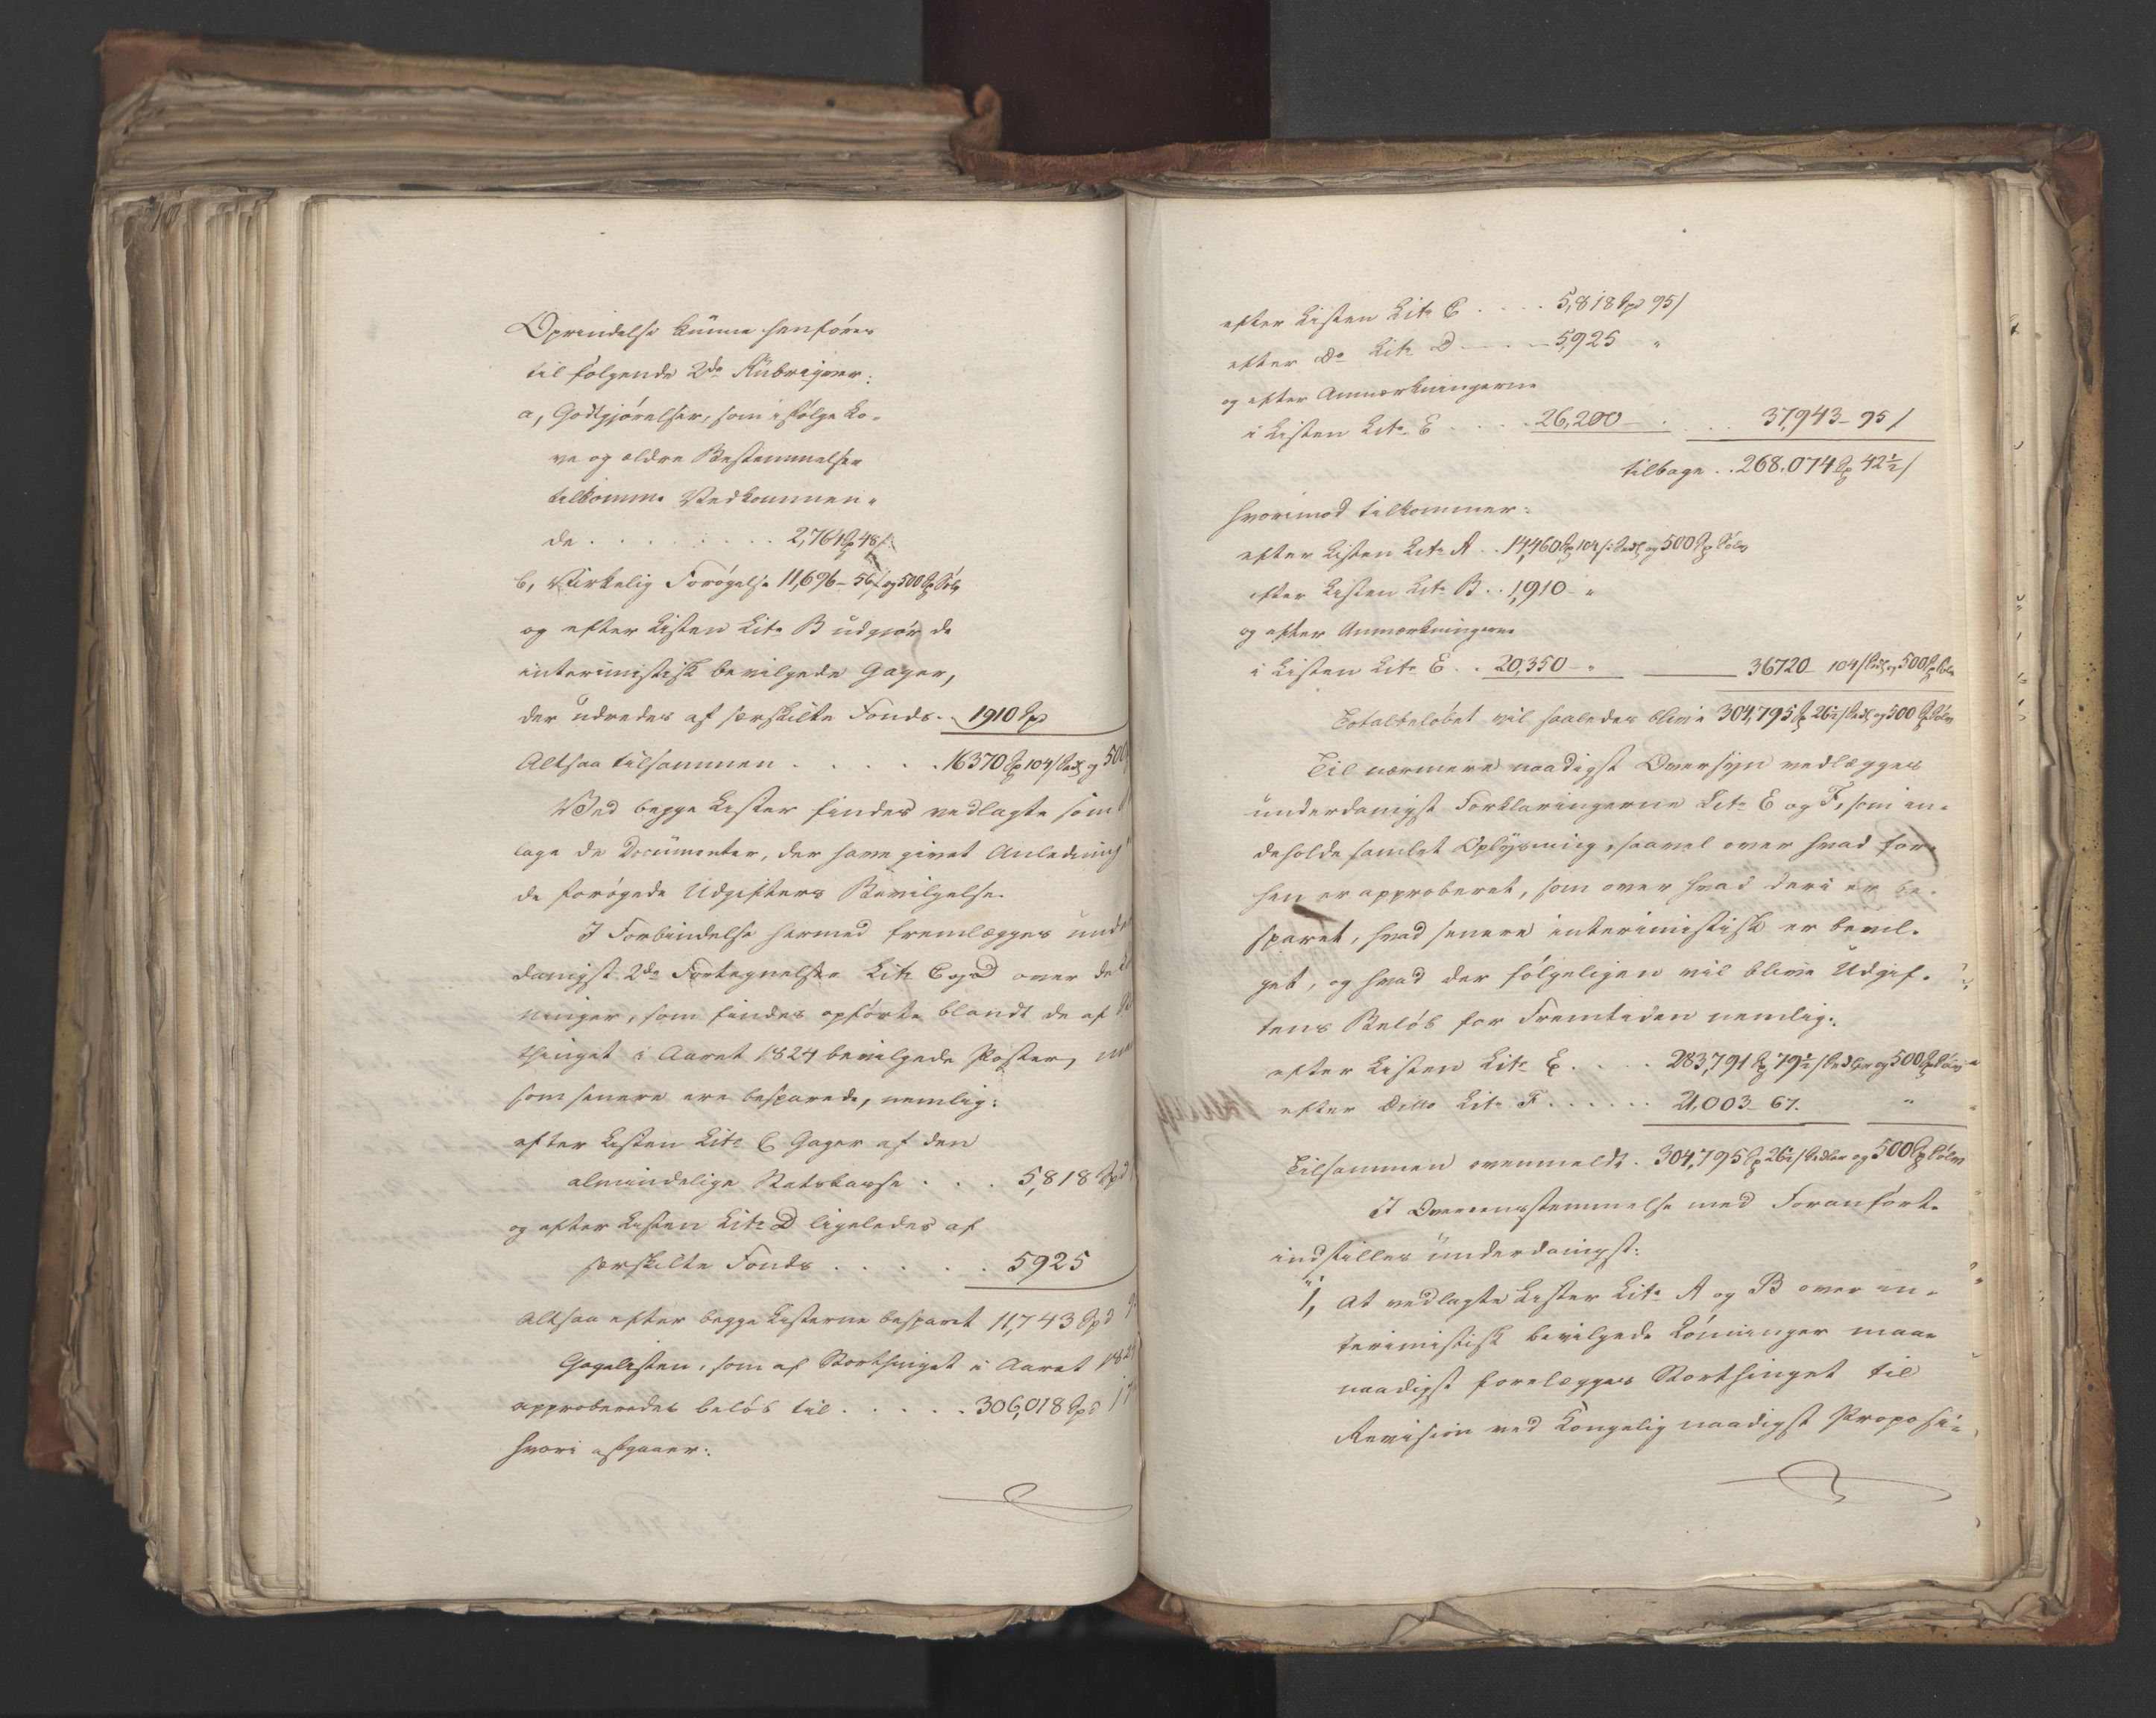 Oprindelse kunne henføres
til følgende 2de Rubriquer:
a, Godtgjørelser, som ifølge Lo-
ve og ældre Bestemmelser
tilkomme Vedkommen-
de . . . . . . . . 2,764 Spd 48 ß
b, Virkelig Forøgelse 11,696 - 56 ß og 500 Spd Sølv
og efter Listen Litr B udgjør de
interimistisk bevilgede Gager,
der udredes af særskilte Fonds . 1910 Spd
Altsaa tilsammen . . . . . 16370 Spd 104 ß Sedl og 500
Ved begge Lister findes vedlagte som
lage de Documenter, der have givet Anledning
de forøgede Udgifters Bevilgelse.
I Forbindelse hermed fremlægges und
danigst 2de Fortegnelser Litr C og D over de
ninger, som findes opførte blandt de af
thinget i Aaret 1824 bevilgede Poster,
som senere ere besparede, nemlig:
efter Listen Litr C Gager af den
almindelige Statskasse . . . 5,818 Spd
og efter Listen Litr D ligeledes af
særskilte Fonds . . . . . . 5925
Altsaa efter begge Listerne besparet 11,743 Spd
Gagelisten, som af Storthinget i Aaret 1824
approberedes beløb til . . . . . 306,018 Spd
hvori afgaaer:
efter Listen Litr C . . . . 5,818 Spd 95 ß
efter Do Litr D . . . . 5,925 "
og efter Anmærkningerne
i Listen Litr E . . . . 26,200 - . . . 37,943 - 95 ß
tilbage . . 268,074 Spd 42½ ß
hvorimod tilkommer:
efter Listen Litr A . . 14,460 Spd 104 ß Sedl og 500 Spd Sølv
efter Listen Litr B . . 1,910 - "
og efter Anmærkningerne
i Listen Litr E . . 20,350 - " 36720 - 104 ß Sedl og 500 Spd Sølv
Totalbeløbet vil saaledes blive 304,795 Spd 26½ ß Sedl og 500 Spd Sølv
Til nærmere naadigst Oversyn vedlægges
underdanigst Forklaringerne Litr E og F, som in-
deholde samlet Oplysning, saavel over hvad for-
hen er approberet, som over hvad deri er be-
sparet, hvad senere interimistisk er bevil-
get, og hvad der følgeligen vil blive Udgif-
tens Beløb for Fremtiden nemlig:
efter Listen Litr E . . . . 283,791 Spd 79½ ß Sedler og 500 Spd Sølv
efter Ditto Litr F . . . . . . 21,003 - 67. "
Tilsammen ovenmeldte . 304,795 Spd 26½ ß Sedler og 500 Spd Sølv
I Overeensstemmelse med Foranførte
indstilles underdanigst:
1, At vedlagte Lister Litr A og B over in-
terimistisk bevilgede Lønninger maae
naadigst forelægges Storthinget til
Revision ved Kongelig naadigst Proposi-